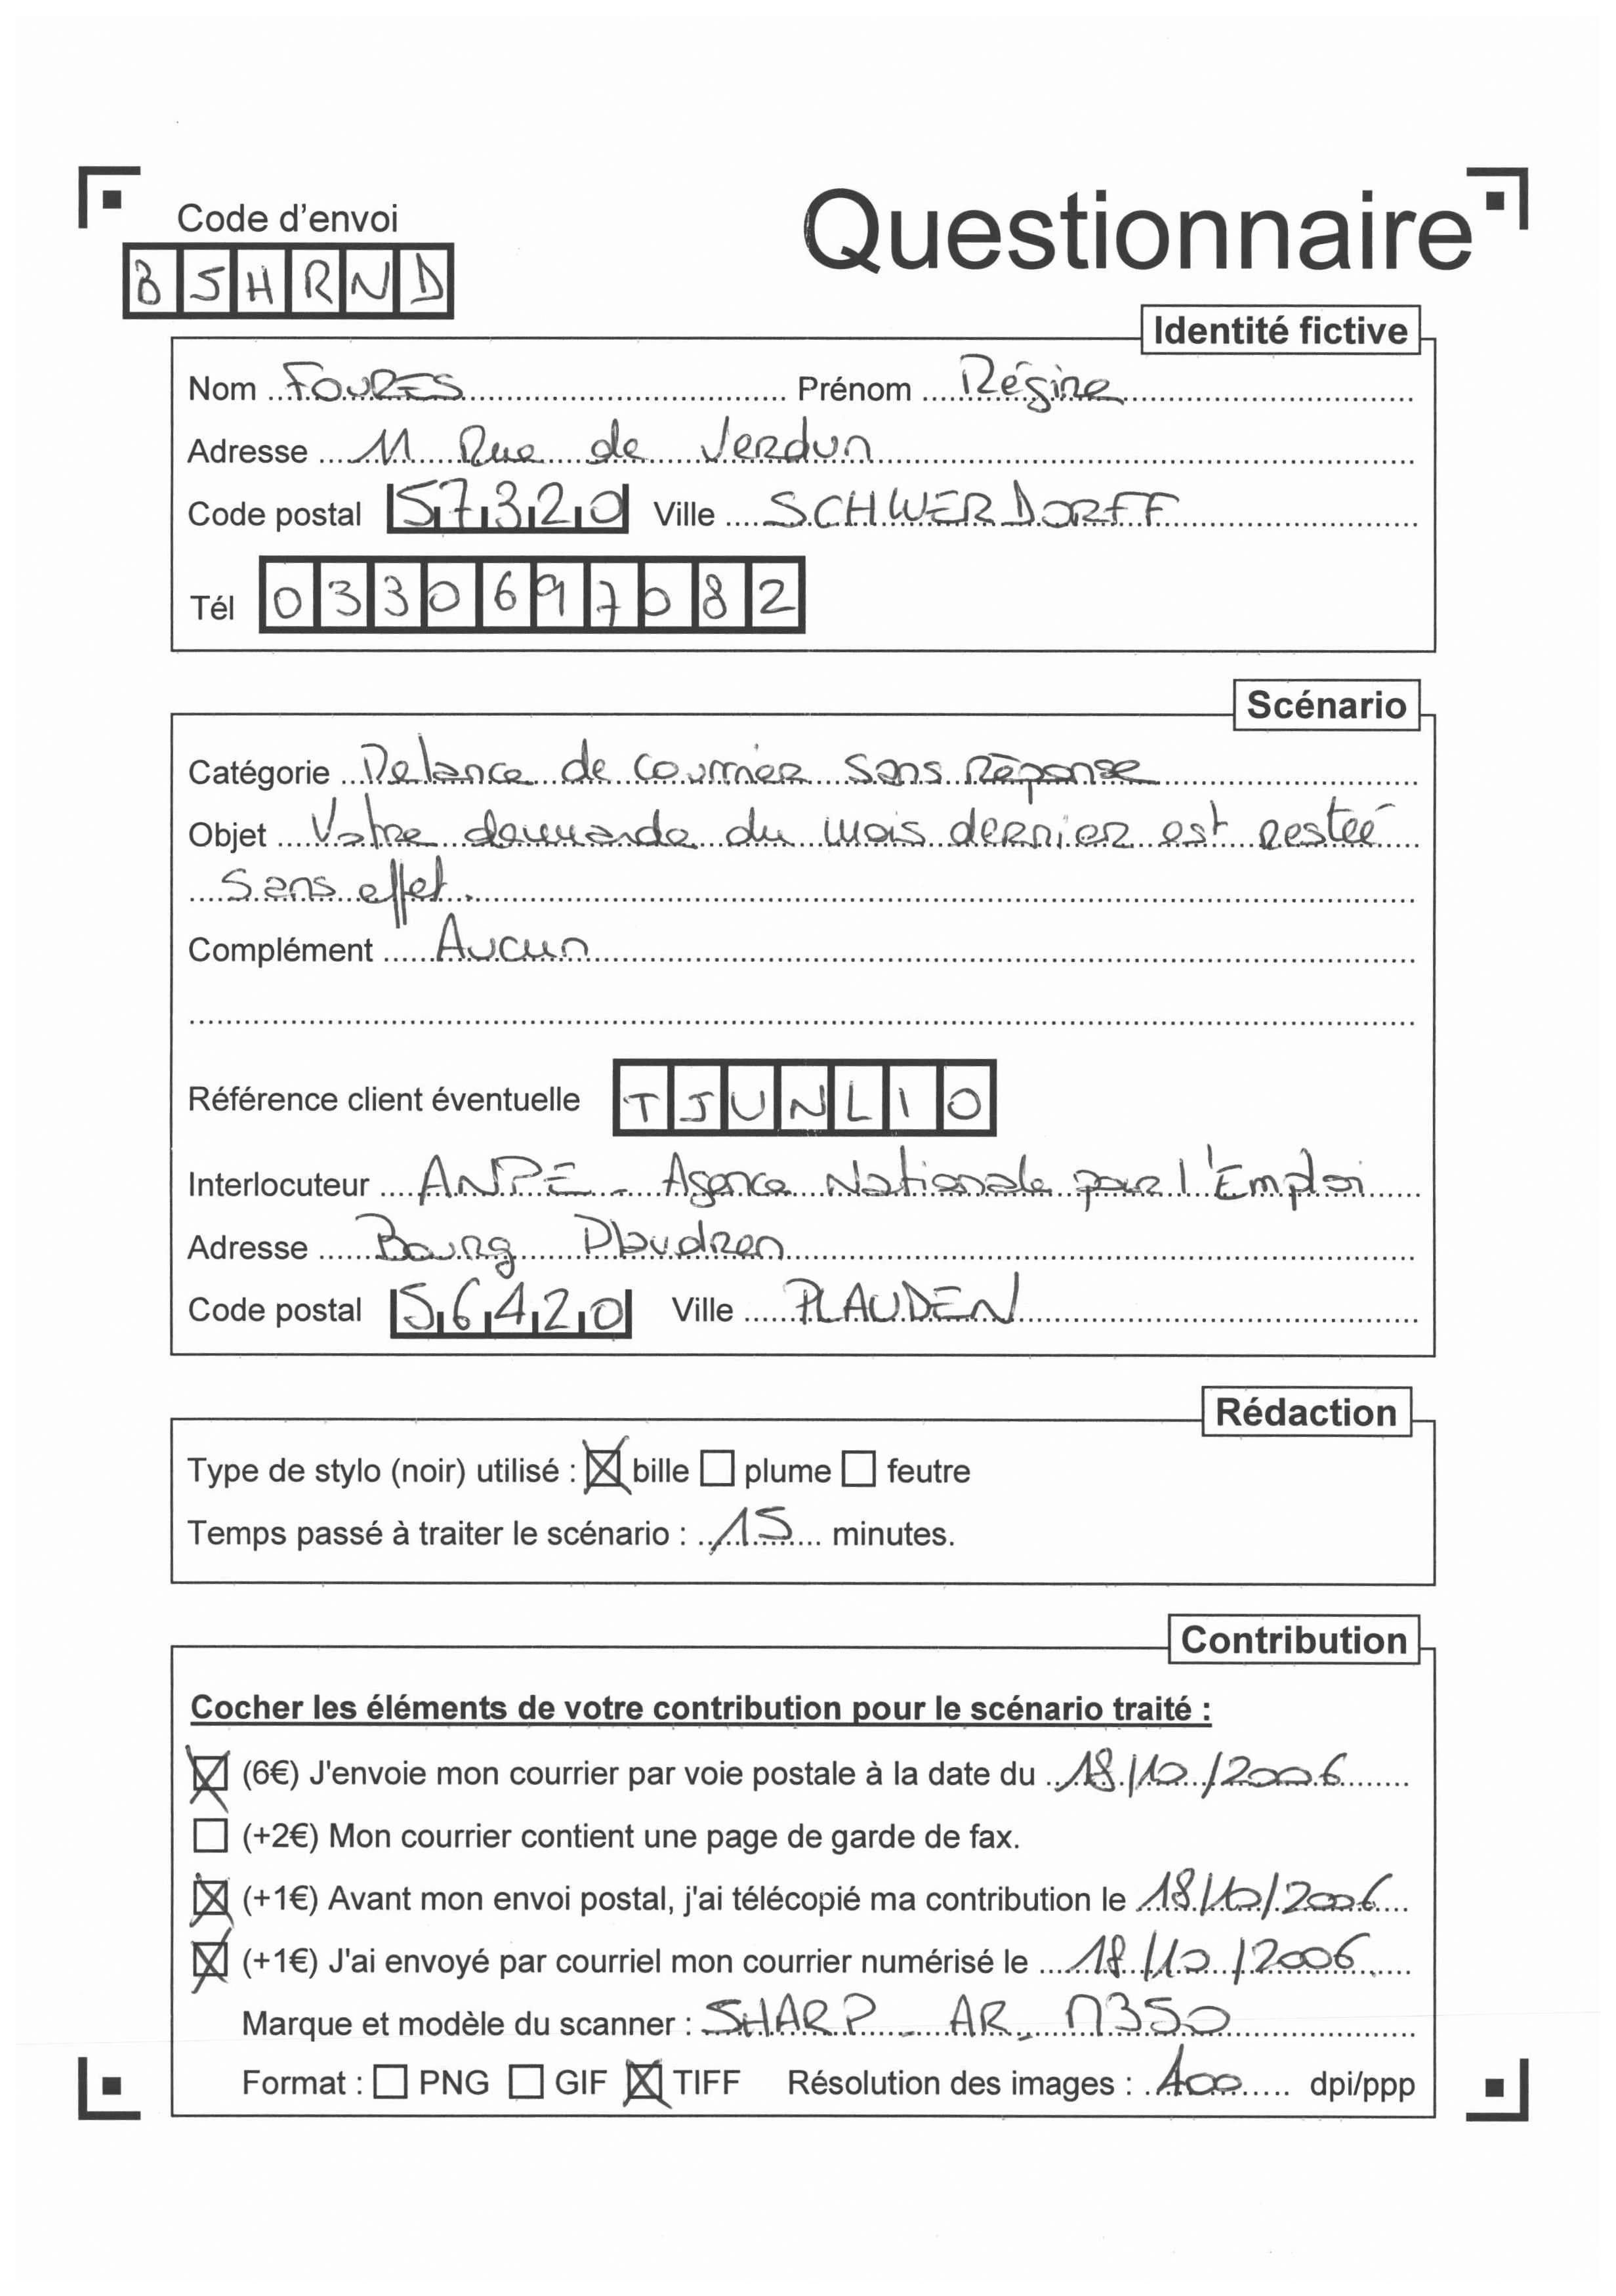 Code d'envoi
Questionnaire
BSHRND
Identité fictive
Nom FOURES Prénom Régine
Adresse 11 Rue de Verdun
Code postal 57320 Ville SCHWERDORFF
Tél 0330697082
Scénario
Catégorie Relance de courrier sans Réponse
Objet Votre demande du mois dernier est restée
sans effet.
Complément Aucun
Référence client éventuelle TJUNL10
Interlocuteur ANPE - Agence Nationale pour l'Emploi
Adresse Bourg Plaudren
Code postal 56420 Ville PLAUDEN
Rédaction
Type de stylo (noir) utilisé : bille plume feutre
Temps passé à traiter le scénario : 15 minutes.
Contribution
Cocher les éléments de votre contribution pour le scénario traité :
(6€) J'envoie mon courrier par voie postale à la date du 18/10/2006
(+2€) Mon courrier contient une page de garde de fax.
(+1€) Avant mon envoi postal, j'ai télécopié ma contribution le 18/10/2006
(+1€) J'ai envoyé par courriel mon courrier numérisé le 18/10/2006.
Marque et modèle du scanner : SHARP - AR - M350
Format : PNG GIF TIFF Résolution des images : 400 dpi/ppp